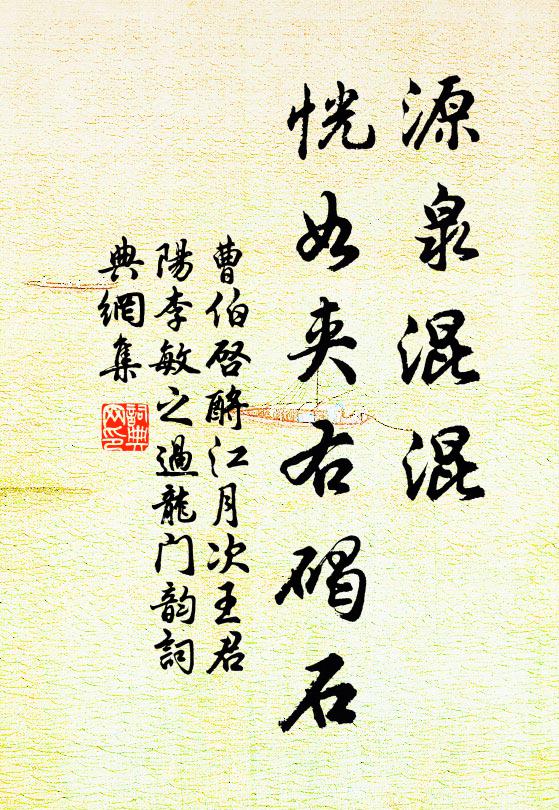 源泉混混
恍如夹右碣石
曹伯启酹江月次王君
陽李敏之過龍门韵詞
典網集
詞典
网印